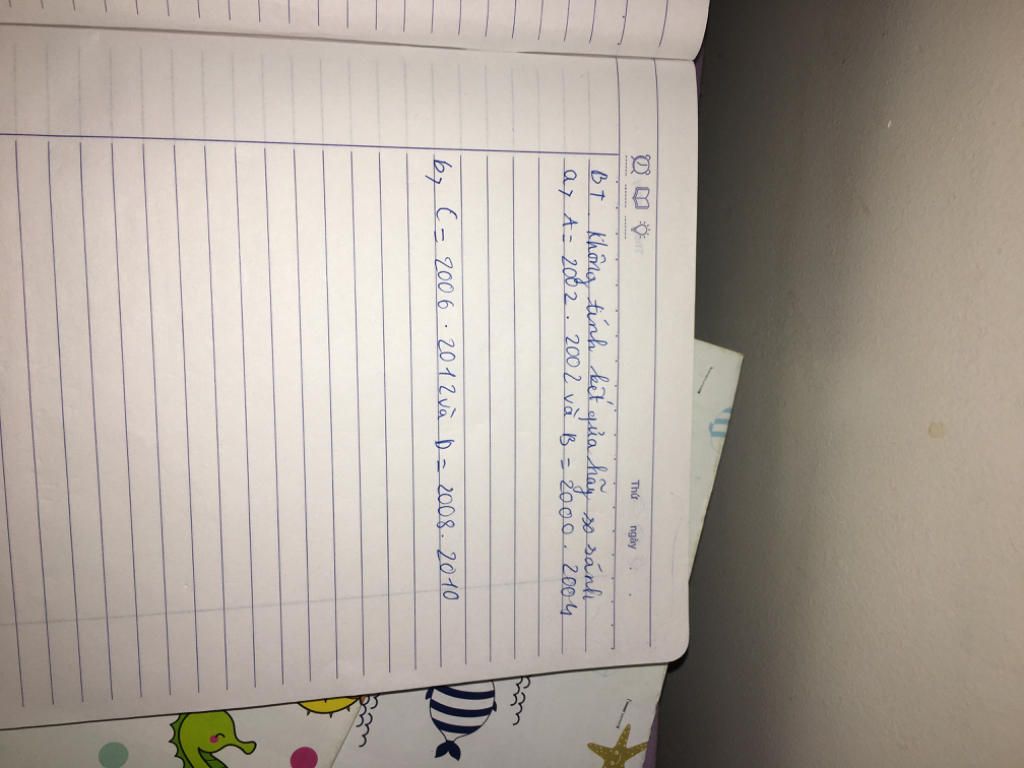 Thứ ngày
BT. Không tính kết quả hãy so sánh
a, A = 2002 . 2002 và B = 2000 . 2004
b, C = 2006 . 2012 và D = 2008 . 2010